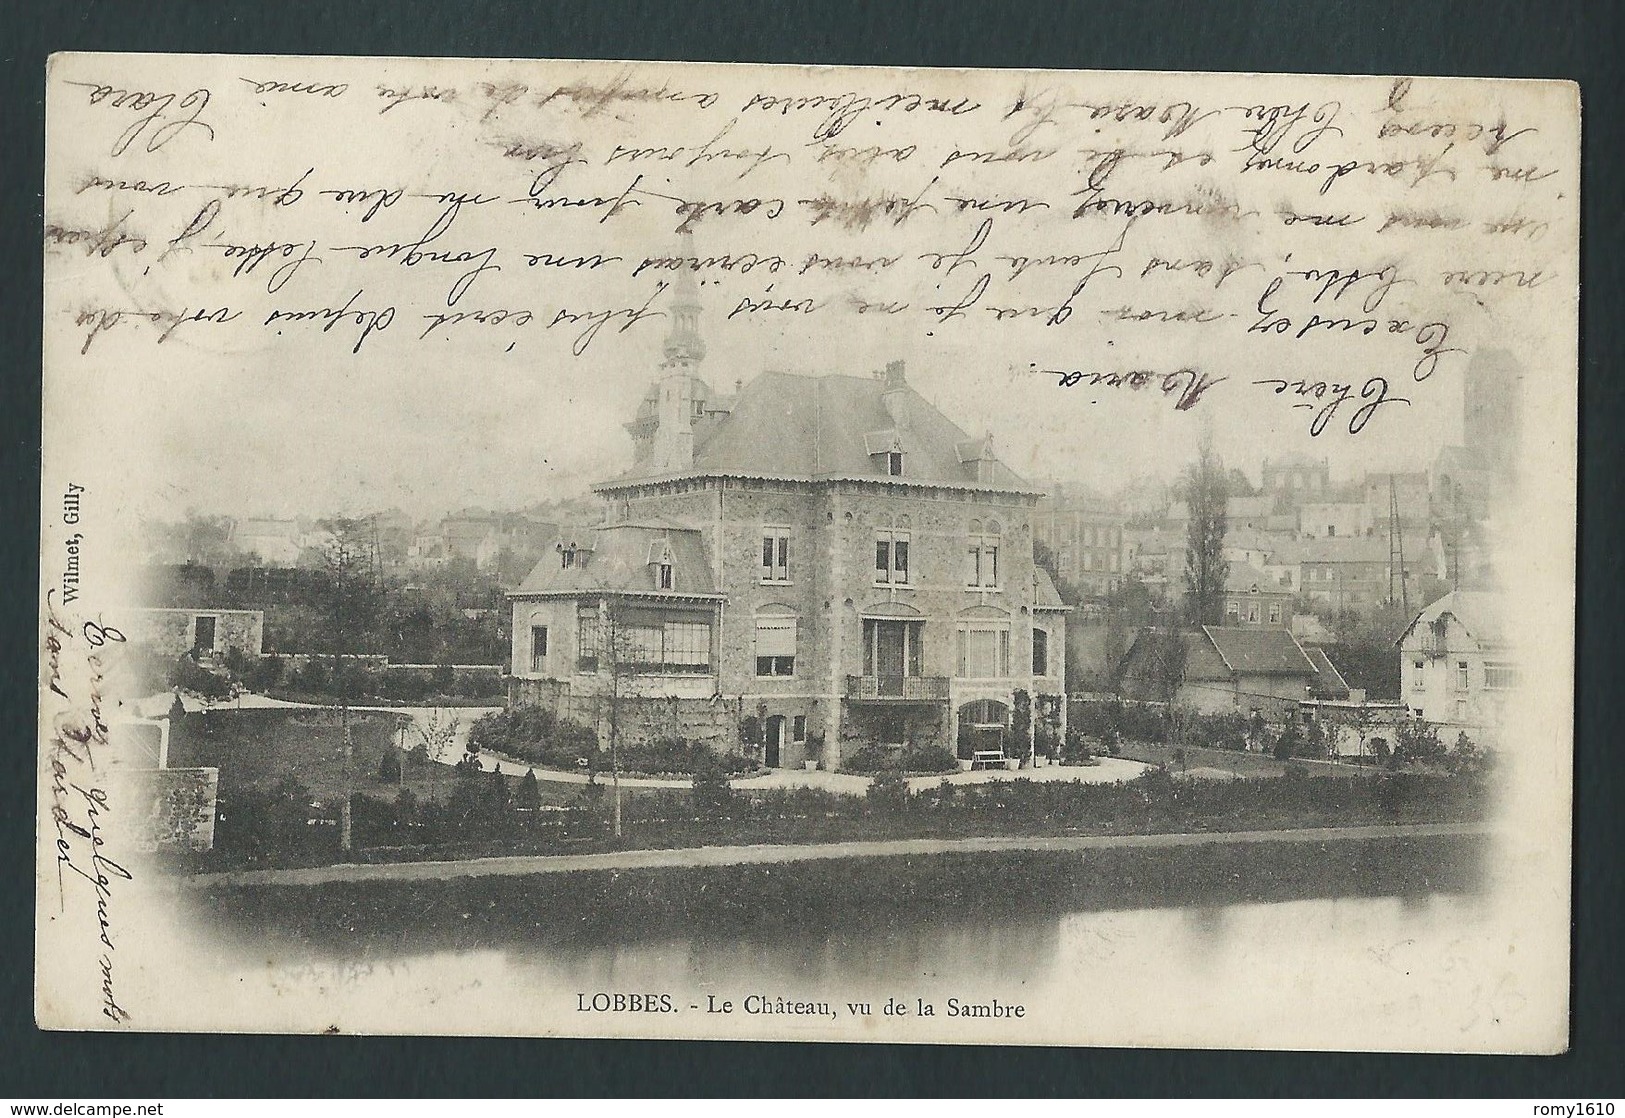 Chère Maria.
Excusez-moi que je ne vous plus écris depuis votre der
nière lettre, sans faute je vous écrirais une longue lettre, j'espère
que vous me renvoyez une petite carte pour me dire que vous
me pardonnez et si vous allez toujours bien
recevez Chère Maria les meilleures amitiés de votre amie Clara
Wilmet, Gilly
Ecrivez quelques mots
sans tarder
LOBBES. - Le Château, vu de la Sambre
delcampe.net
romy1610